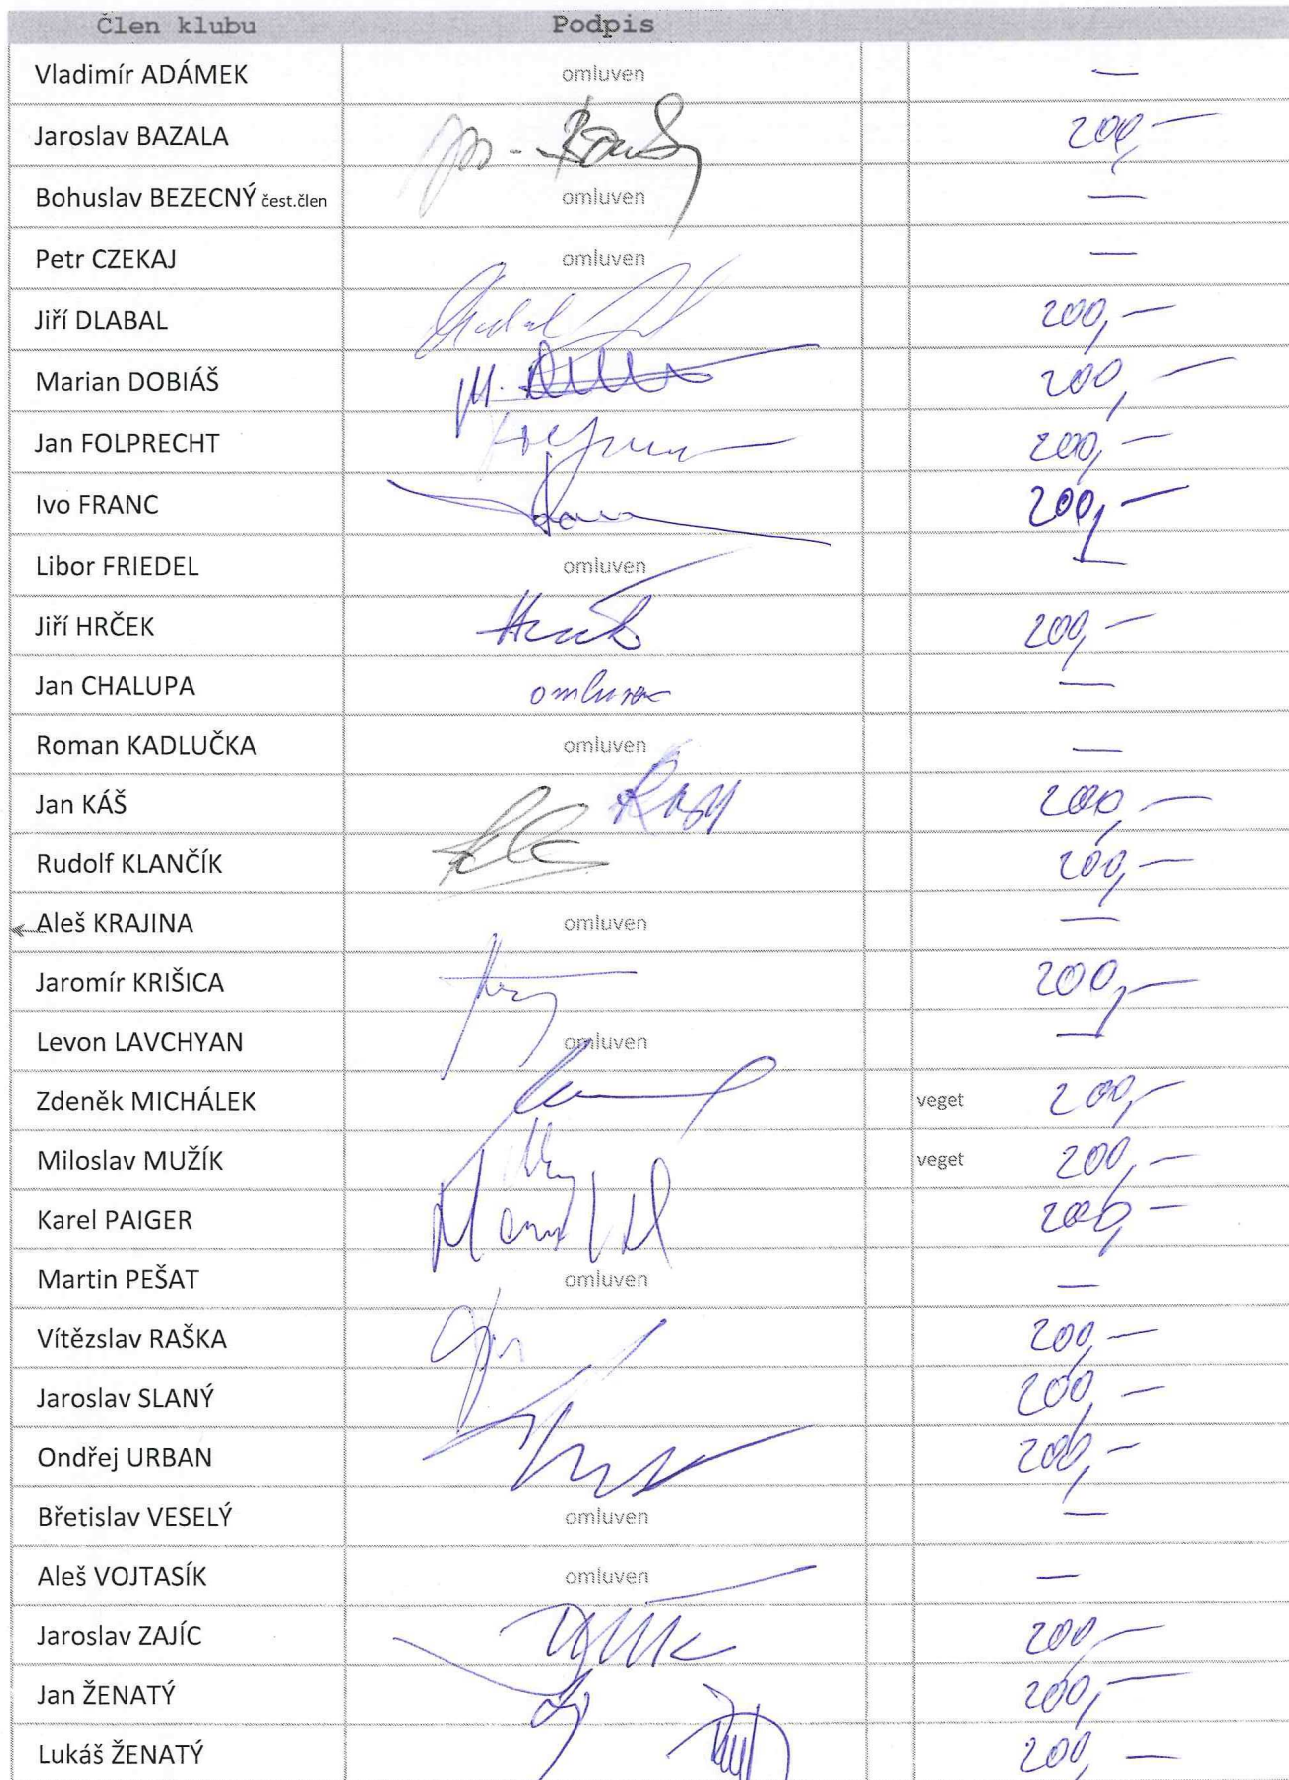 Člen klubu Podpis
Vladimír ADÁMEK omluven —
Jaroslav BAZALA 200,—
Bohuslav BEZECNÝ čest.člen omluven —
Petr CZEKAJ omluven —
Jiří DLABAL 200,—
Marian DOBIÁŠ 200,—
Jan FOLPRECHT 200,—
Ivo FRANC 200,—
Libor FRIEDEL omluven —
Jiří HRČEK 200,—
Jan CHALUPA omluven —
Roman KADLUČKA omluven —
Jan KÁŠ 200,—
Rudolf KLANČÍK 200,—
Aleš KRAJINA omluven —
Jaromír KRIŠICA 200,—
Levon LAVCHYAN omluven —
Zdeněk MICHÁLEK veget 200,—
Miloslav MUŽÍK veget 200,—
Karel PAIGER 200,—
Martin PEŠAT omluven —
Vítězslav RAŠKA 200,—
Jaroslav SLANÝ 200,—
Ondřej URBAN 200,—
Břetislav VESELÝ omluven —
Aleš VOJTASÍK omluven —
Jaroslav ZAJÍC 200,—
Jan ŽENATÝ 200,—
Lukáš ŽENATÝ 200,—